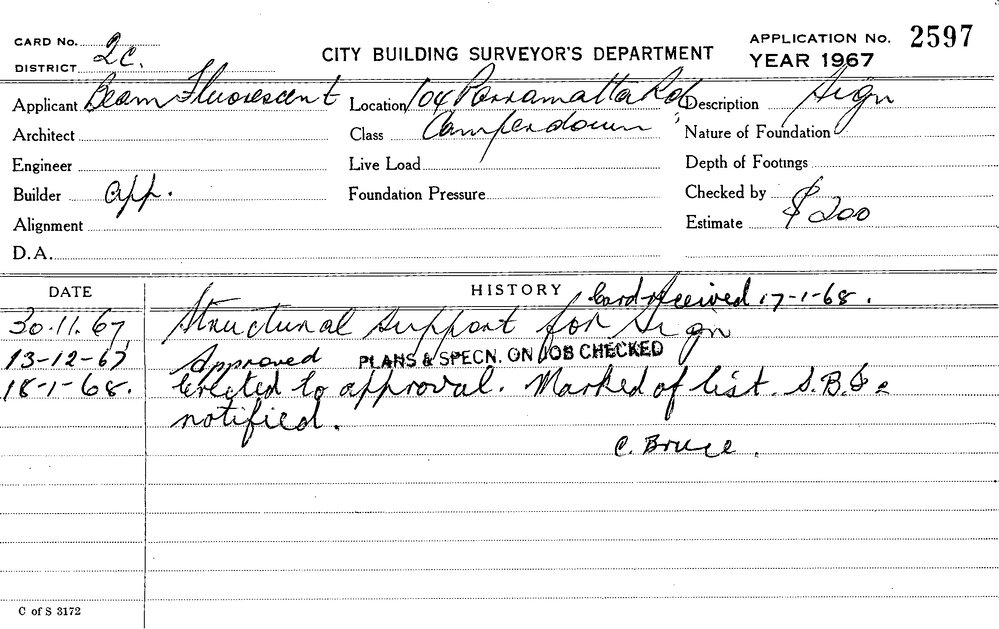 CARD No. 2c. CITY BUILDING SURVEYOR'S DEPARTMENT APPLICATION No. 2597
DISTRICT YEAR 1967
Applicant Beam Fluorescent Location 104 Parramatta Rd Description Sign
Architect Class Camperdown Nature of Foundation
Engineer Live Load Depth of Footings
Builder app. Foundation Pressure Checked by
Alignment Estimate $200
D.A.
DATE HISTORY Card received 17-1-68.
30.11.67 Structural support for Sign
13-12-67 Approved PLANS & SPECN. ON JOB CHECKED
18-1-68. Erected to approval. Marked of list. S.B.S.
notified.
C. Bruce.
C of S 3172